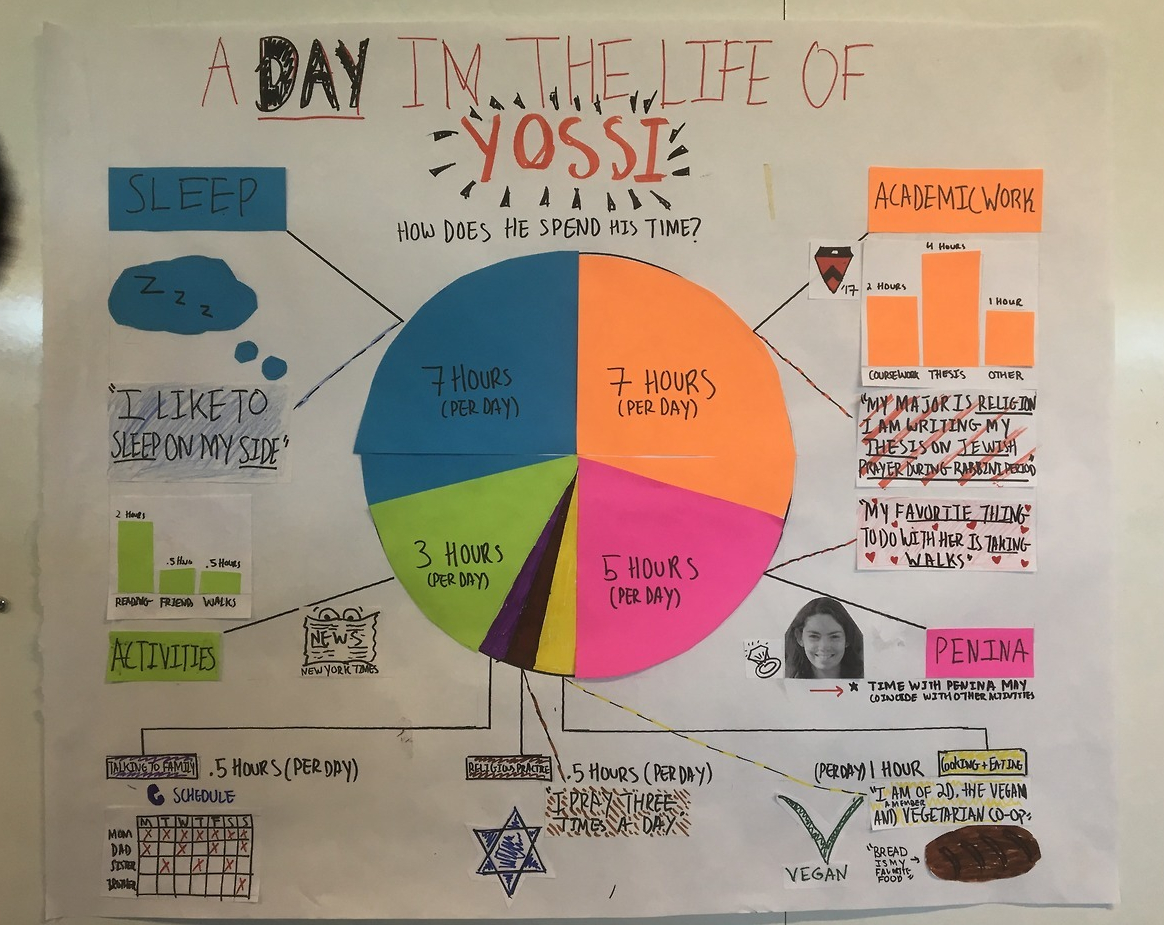 A DAY IN THE LIFE OF
YOSSI
HOW DOES HE SPEND HIS TIME?
SLEEP
Z Z Z
"I LIKE TO
SLEEP ON MY SIDE"
7 HOURS
(PER DAY)
7 HOURS
(PER DAY)
3 HOURS
(PER DAY)
5 HOURS
(PER DAY)
ACADEMIC WORK
'17
4 HOURS
2 HOURS
1 HOUR
COURSEWORK THESIS OTHER
"MY MAJOR IS RELIGION
I AM WRITING MY
THESIS ON JEWISH
PRAYER DURING RABBINI PERIOD"
"MY FAVORTIE THING
TO DO WITH HER IS TAKING
WALKS"
PENINA
★ TIME WITH PENINA MAY
COINCIDE WITH OTHER ACTIVITIES
2 HOURS
.5 HOURS
READING FRIEND WALKS
ACTIVITIES
NEWS
NEW YORK TIMES
TALKING TO FAMILY .5 HOURS (PER DAY)
SCHEDULE
M T W T F S S
MOM X X X X X X X
DAD X X X X
SISTER X X X
BROTHER X
RELIGIOUS PRACTICE .5 HOURS (PER DAY)
"I PRAY THREE
TIMES A DAY."
(PER DAY) 1 HOUR COOKING + EATING
"I AM OF 2D, THE VEGAN
A MEMBER
AND VEGETARIAN CO-OP"
VEGAN
"BREAD
IS MY
FAVORITE
FOOD"